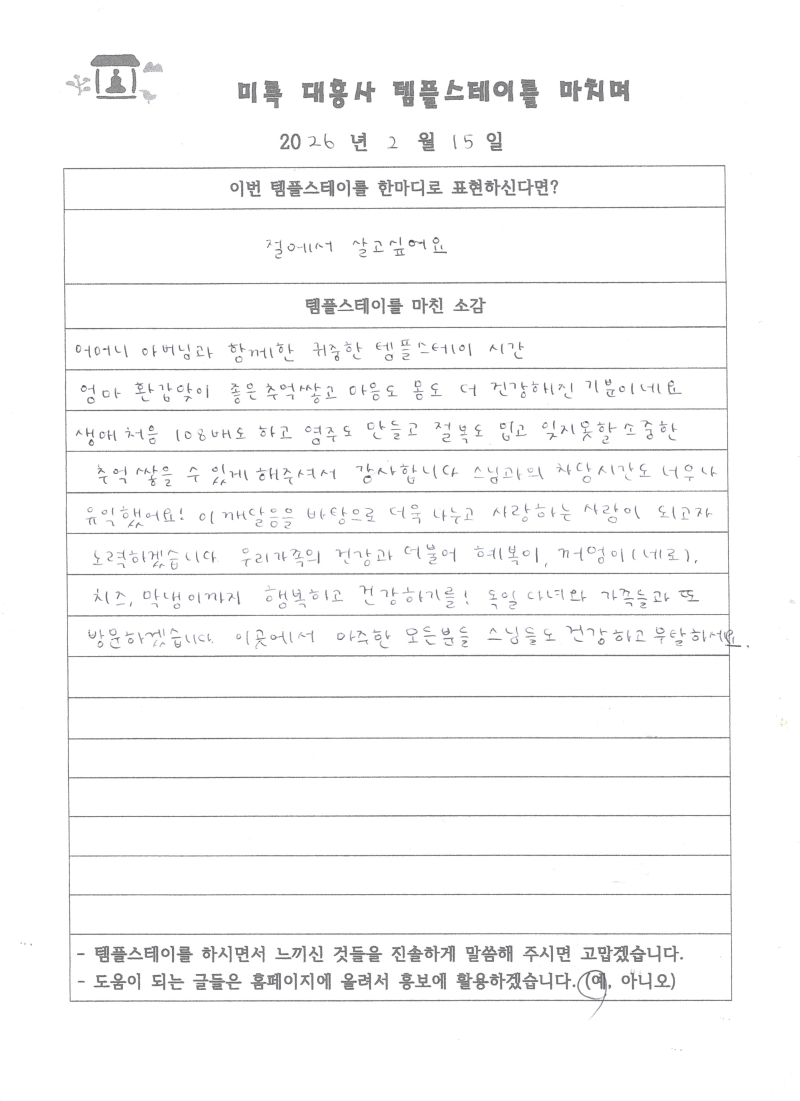 미륵 대흥사 템플스테이를 마치며
2026 년 2 월 15 일
이번 템플스테이를 한마디로 표현하신다면?
절에서 살고싶어요
템플스테이를 마친 소감
어머니 아버님과 함께한 귀중한 템플스테이 시간
엄마 환갑맞이 좋은추억쌓고 마음도 몸도 더 건강해진 기분이네요
생애 처음 108배도 하고 염주도 만들고 절복도 입고 잊지못할 소중한
추억 쌓을 수 있게 해주셔서 감사합니다 스님과의 차담시간도 너무나
유익했어요! 이 깨달음을 바탕으로 더욱 나누고 사랑하는 사람이 되고자
노력하겠습니다. 우리가족의 건강과 더불어 혜복이, 꺼멍이(네로),
치즈, 막냉이까지 행복하고 건강하기를! 독일 다녀와 가족들과 또
방문하겠습니다. 이곳에서 마주한 모든분들 스님들도 건강하고 무탈하세요.
- 템플스테이를 하시면서 느끼신 것들을 진솔하게 말씀해 주시면 고맙겠습니다.
- 도움이 되는 글들은 홈페이지에 올려서 홍보에 활용하겠습니다. (예, 아니오)